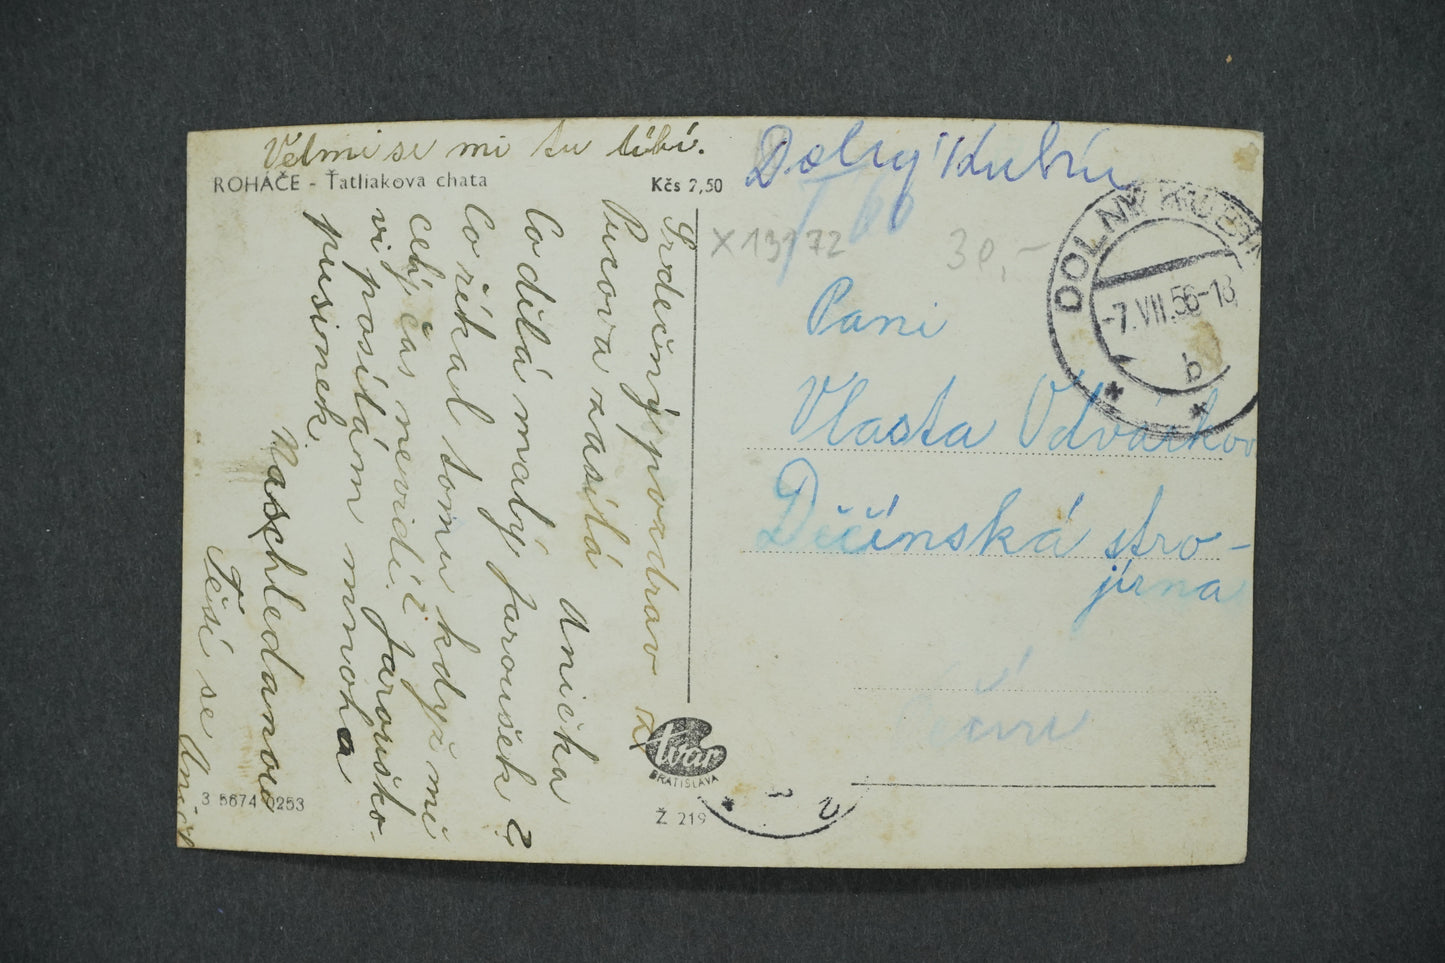 Velmi se mi tu líbí.
ROHÁČE - Ťatliakova chata
Kčs 2,50
Srdečný pozdrav z
Pucova zasílá
Anička
Co dělá malý Jaroušek?
Co říkal tomu když mě
celý čas nevidí? Jarouško-
vi posílám mnoha
pusinek.
Naschledanou
Těší se Anič
3 5674 0253
tvar
BRATISLAVA
Ž 219
Dolný Kubín
X 13172
30,-
DOLNÝ KUBÍN
-7.VII.56-18
b
Paní
Vlasta Odvárkov
Děčínská stro-
jírna